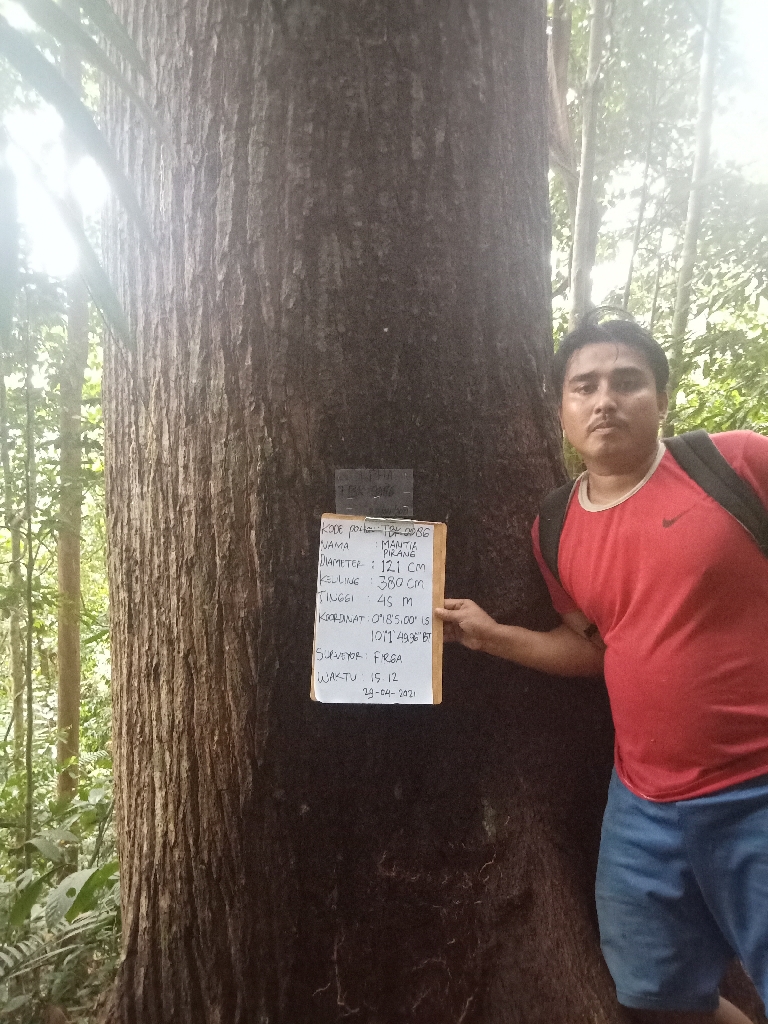 KODE pohon: TBK 0086
NAMA : MANTIA
PIRANG
DIAMETER : 121 cm
KELILING : 380 cm
TINGGI : 45 m
KOORDINAT : 0°18'5,00" LS
101°1' 49,96" BT
SURVEYOR : FIRGA
WAKTU : 15.12
29-04-2021